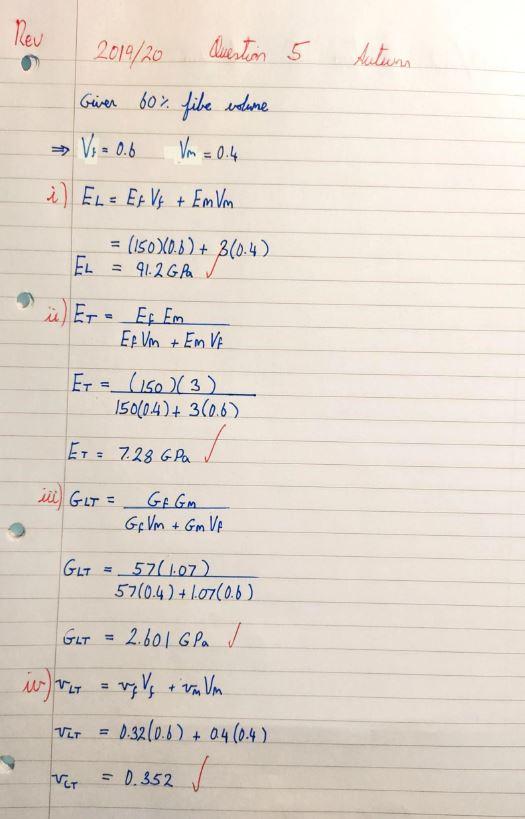 Rev
2019/20 Question 5 Autumn
Given 60% fibe volume
⇒ Vf = 0.6 Vm = 0.4
i) EL = Ef Vf + Em Vm
= (150)(0.6) + 3(0.4)
EL = 91.2 GPa ✓
ii) ET = Ef Em
Ef Vm + Em Vf
ET = (150)(3)
150(0.4) + 3(0.6)
ET = 7.28 GPa ✓
iii) GLT = Gf Gm
Gf Vm + Gm Vf
GLT = 57(1.07)
57(0.4) + 1.07(0.6)
GLT = 2.601 GPa ✓
iv) vLT = vf Vf + vm Vm
vLT = 0.32(0.6) + 0.4(0.4)
vLT = 0.352 ✓